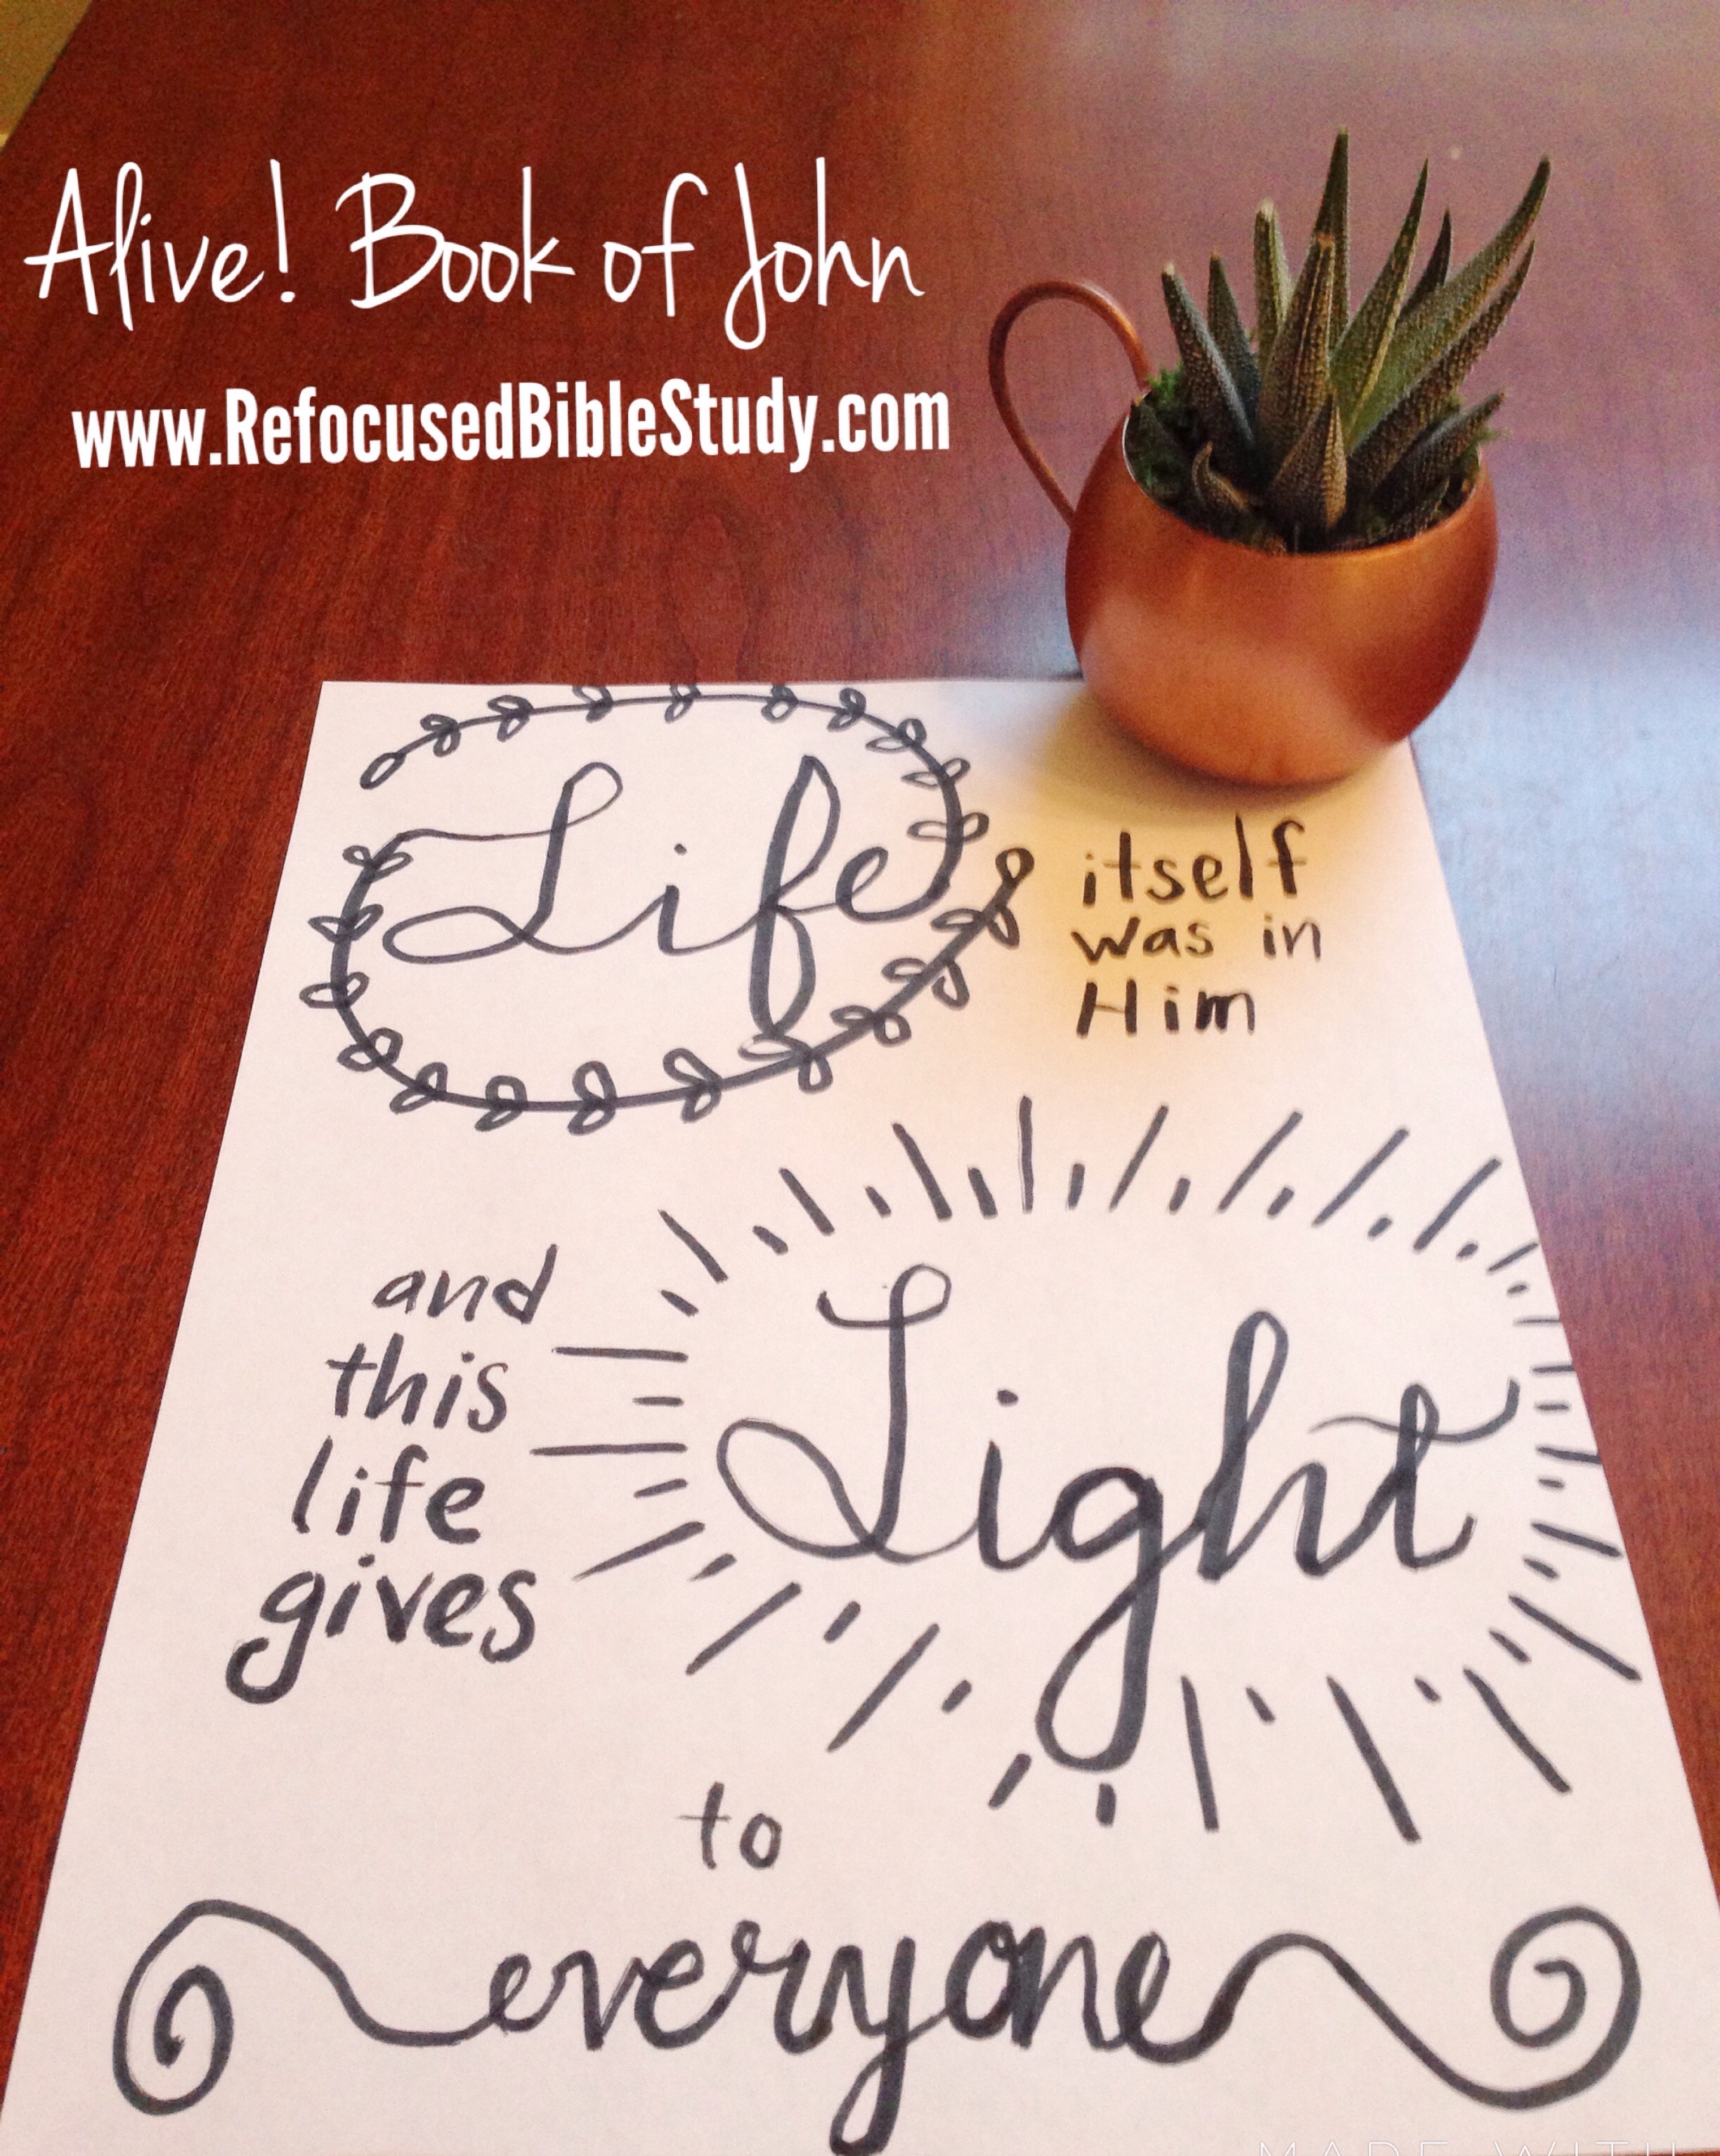 Alive! Book of John
www.RefocusedBibleStudy.com
Life
itself
was in
Him
and
this
life
gives
Light
to
everyone
MADE WITH